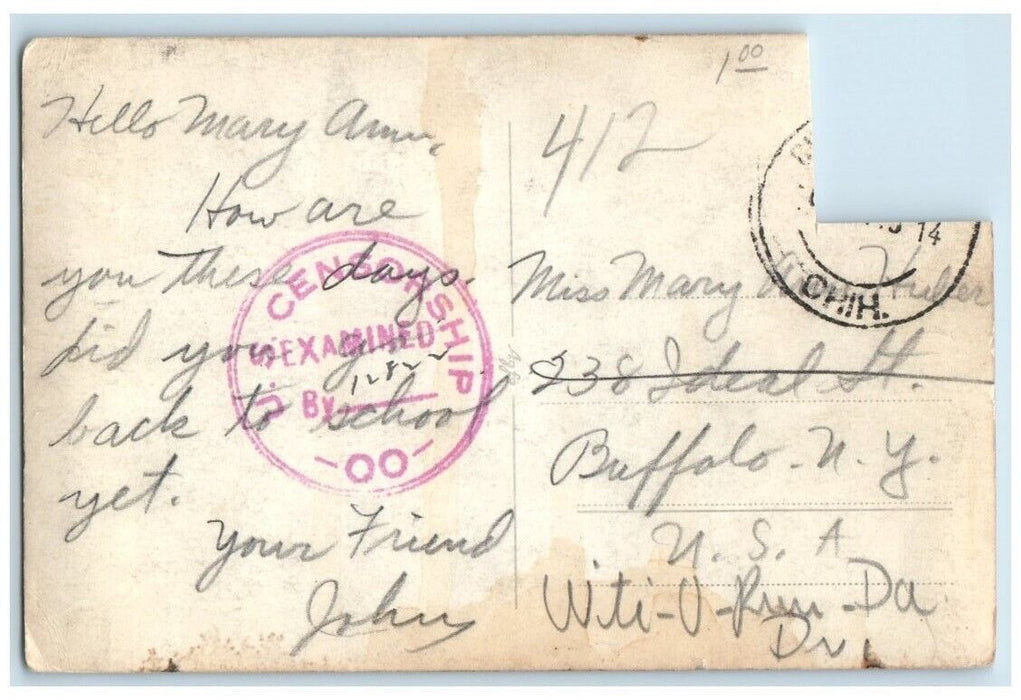 1 00
Hello Mary Ann,
How are
you these days.
Did you go
back to school
yet.
Your Friend
John
U.S. CENSORSHIP
EXAMINED
By 1282
-00-
412
14
CHIH.
Miss Mary Ann Huber
238 Ideal St.
Buffalo. N. Y.
U. S. A